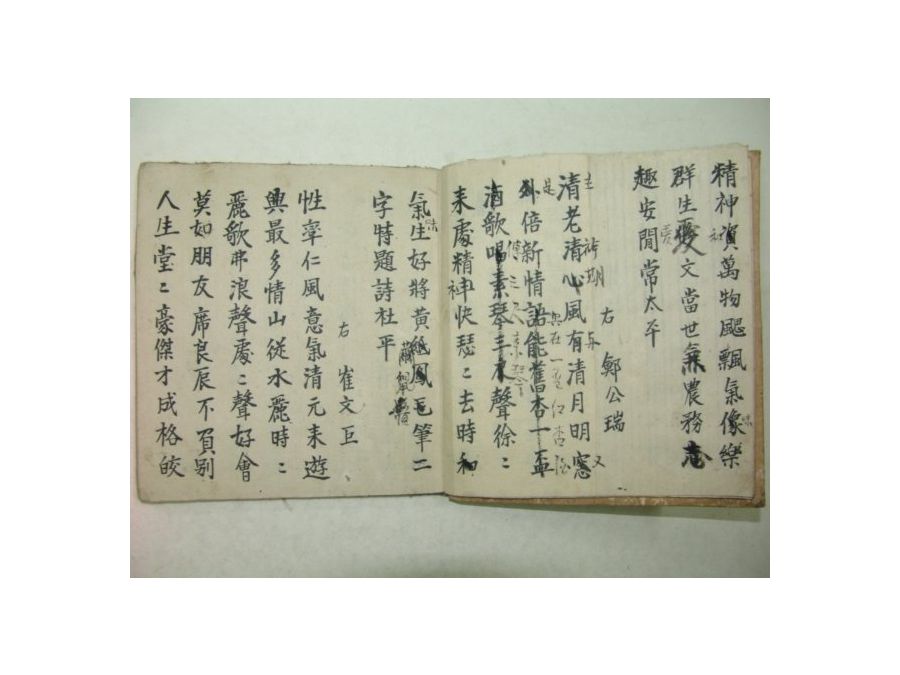 精神賀萬物颸飄氣像樂
群生優文當世氣農務
趣安閒常太平
右 鄭公瑞
清老清心風有清月明窓
外倍新情語能舊杏一盃
酒歌唱素琴聲徐〻
来處精神快瑟〻去時和
氣生好將黃鳳毛筆二
字特題詩社平
右 崔文巨
性率仁風意氣清元来遊
興最多情山從水麗時〻
麗歌弗浪聲處〻聲好會
莫如朋友席良辰不負别
人生堂〻豪傑才成格皎